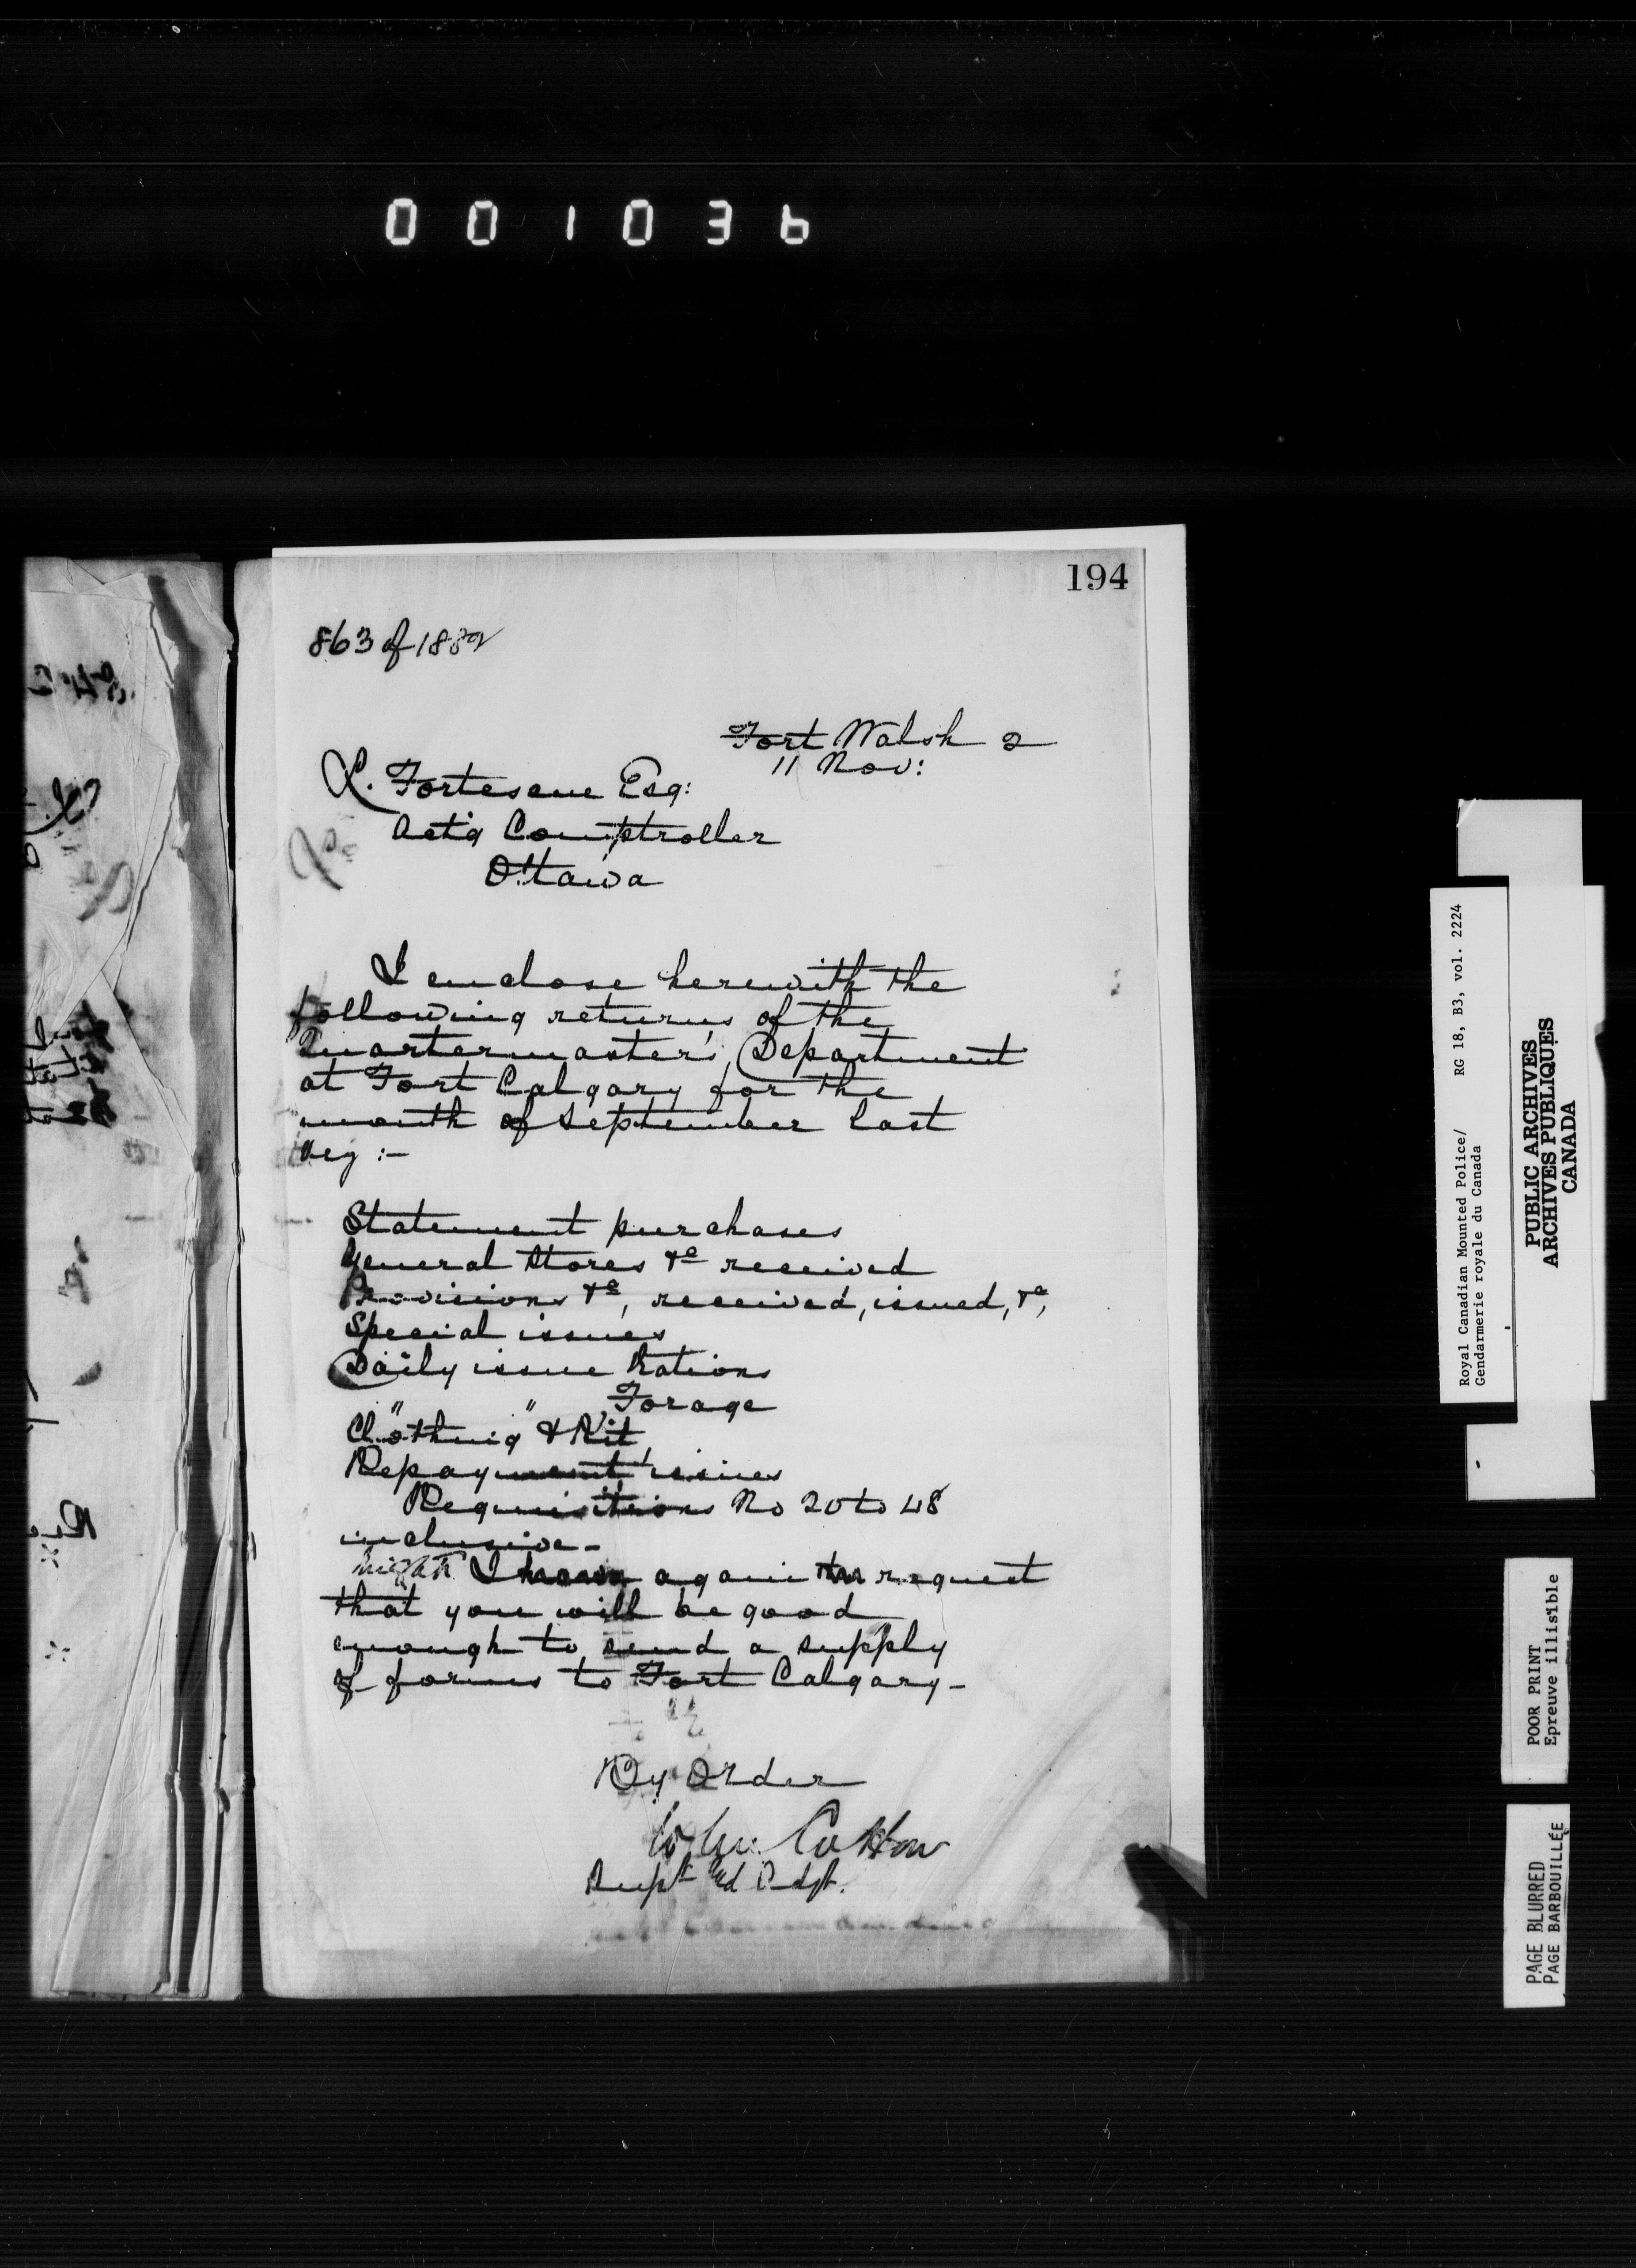 001036
194
863 of 1882
Fort Walsh 2
11 Nov:
L. Fortescue Esq:
Act'g Comptroller
Ottawa
I enclose herewith the
following returns of the
Quartermaster's Department
at Fort Calgary for the
month of September last
viz :-
Statement purchases
General Stores &c received
Provisions &c, received, issued, &c,
Special issues
Daily issue Rations
" " Forage
Clothing & Kit
Repayment issues
Requisitions No 20 to 48
inclusive -
might I again request
that you will be good
enough to send a supply
of forms to Fort Calgary -
By Order
John Cotton
Supt and Adjt.
Royal Canadian Mounted Police/ RG 18, B3, vol. 2224
Gendarmerie royale du Canada
PUBLIC ARCHIVES
ARCHIVES PUBLIQUES
CANADA
POOR PRINT
Epreuve illisible
PAGE BLURRED
PAGE BARBOUILLÉE